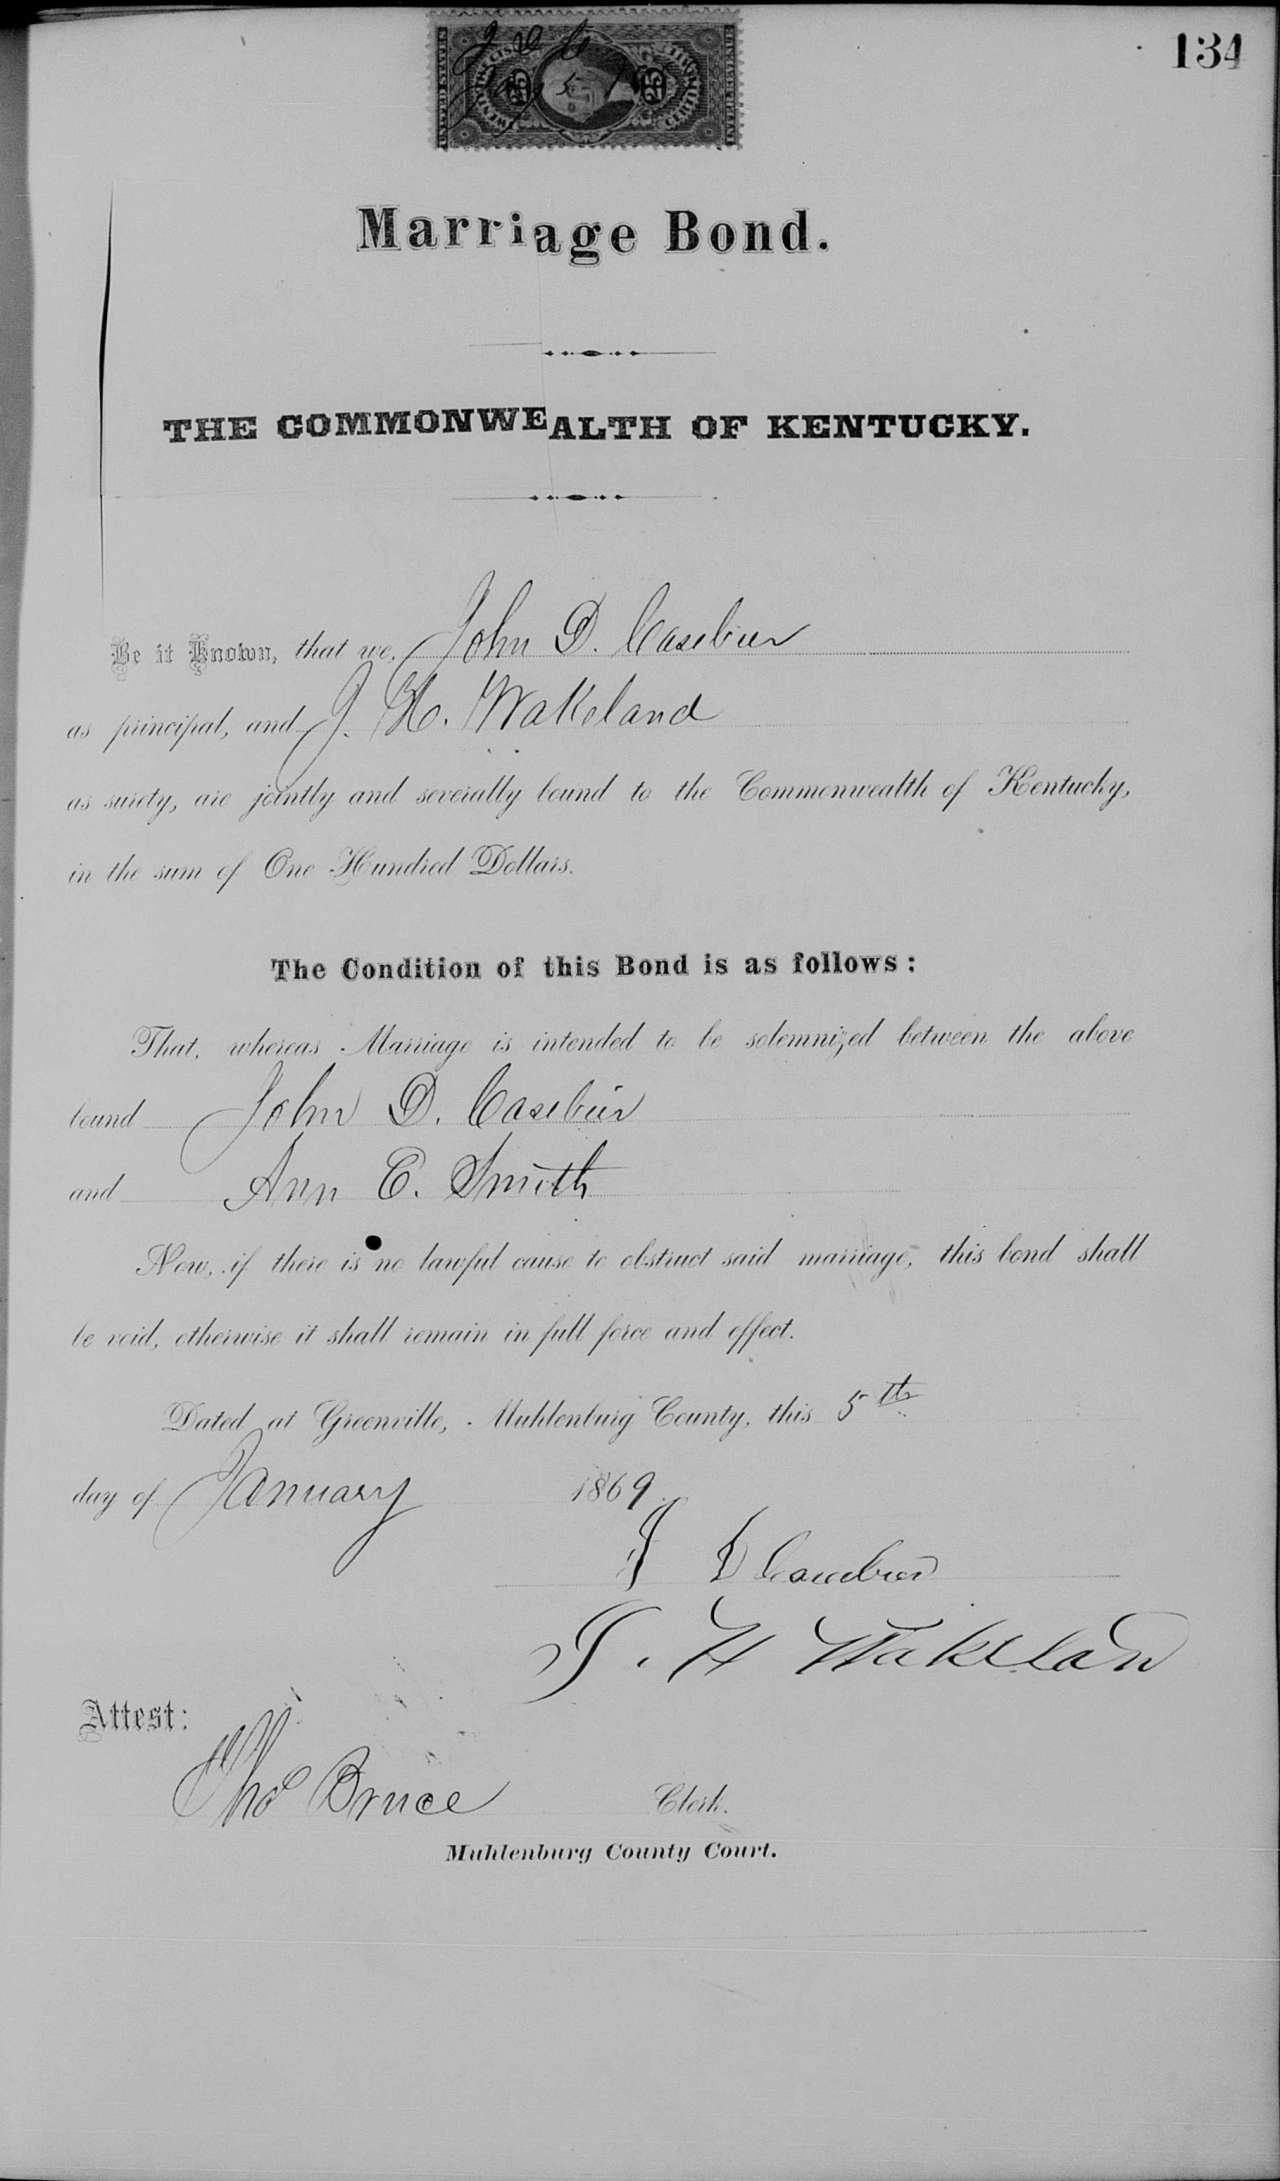 134
UNITED STATES
25 25
J D C
Jany 5
Marriage Bond.
THE COMMONWEALTH OF KENTUCKY.
Be it Known, that we, John D. Casebier
as principal, and J. H. Wakeland
as surety, are jointly and severally bound to the Commonwealth of Kentucky,
in the sum of One Hundred Dollars.
The Condition of this Bond is as follows:
That, whereas Marriage is intended to be solemnized between the above
bound John D. Casebier
and Ann E. Smith
Now, if there is no lawful cause to obstruct said marriage, this bond shall
be void, otherwise it shall remain in full force and effect.
Dated at Greenville, Muhlenburg County, this 5th
day of January 1869
J D Casebier
J. H Wakelan
Attest:
Tho Bruce Clerk.
Muhlenburg County Court.